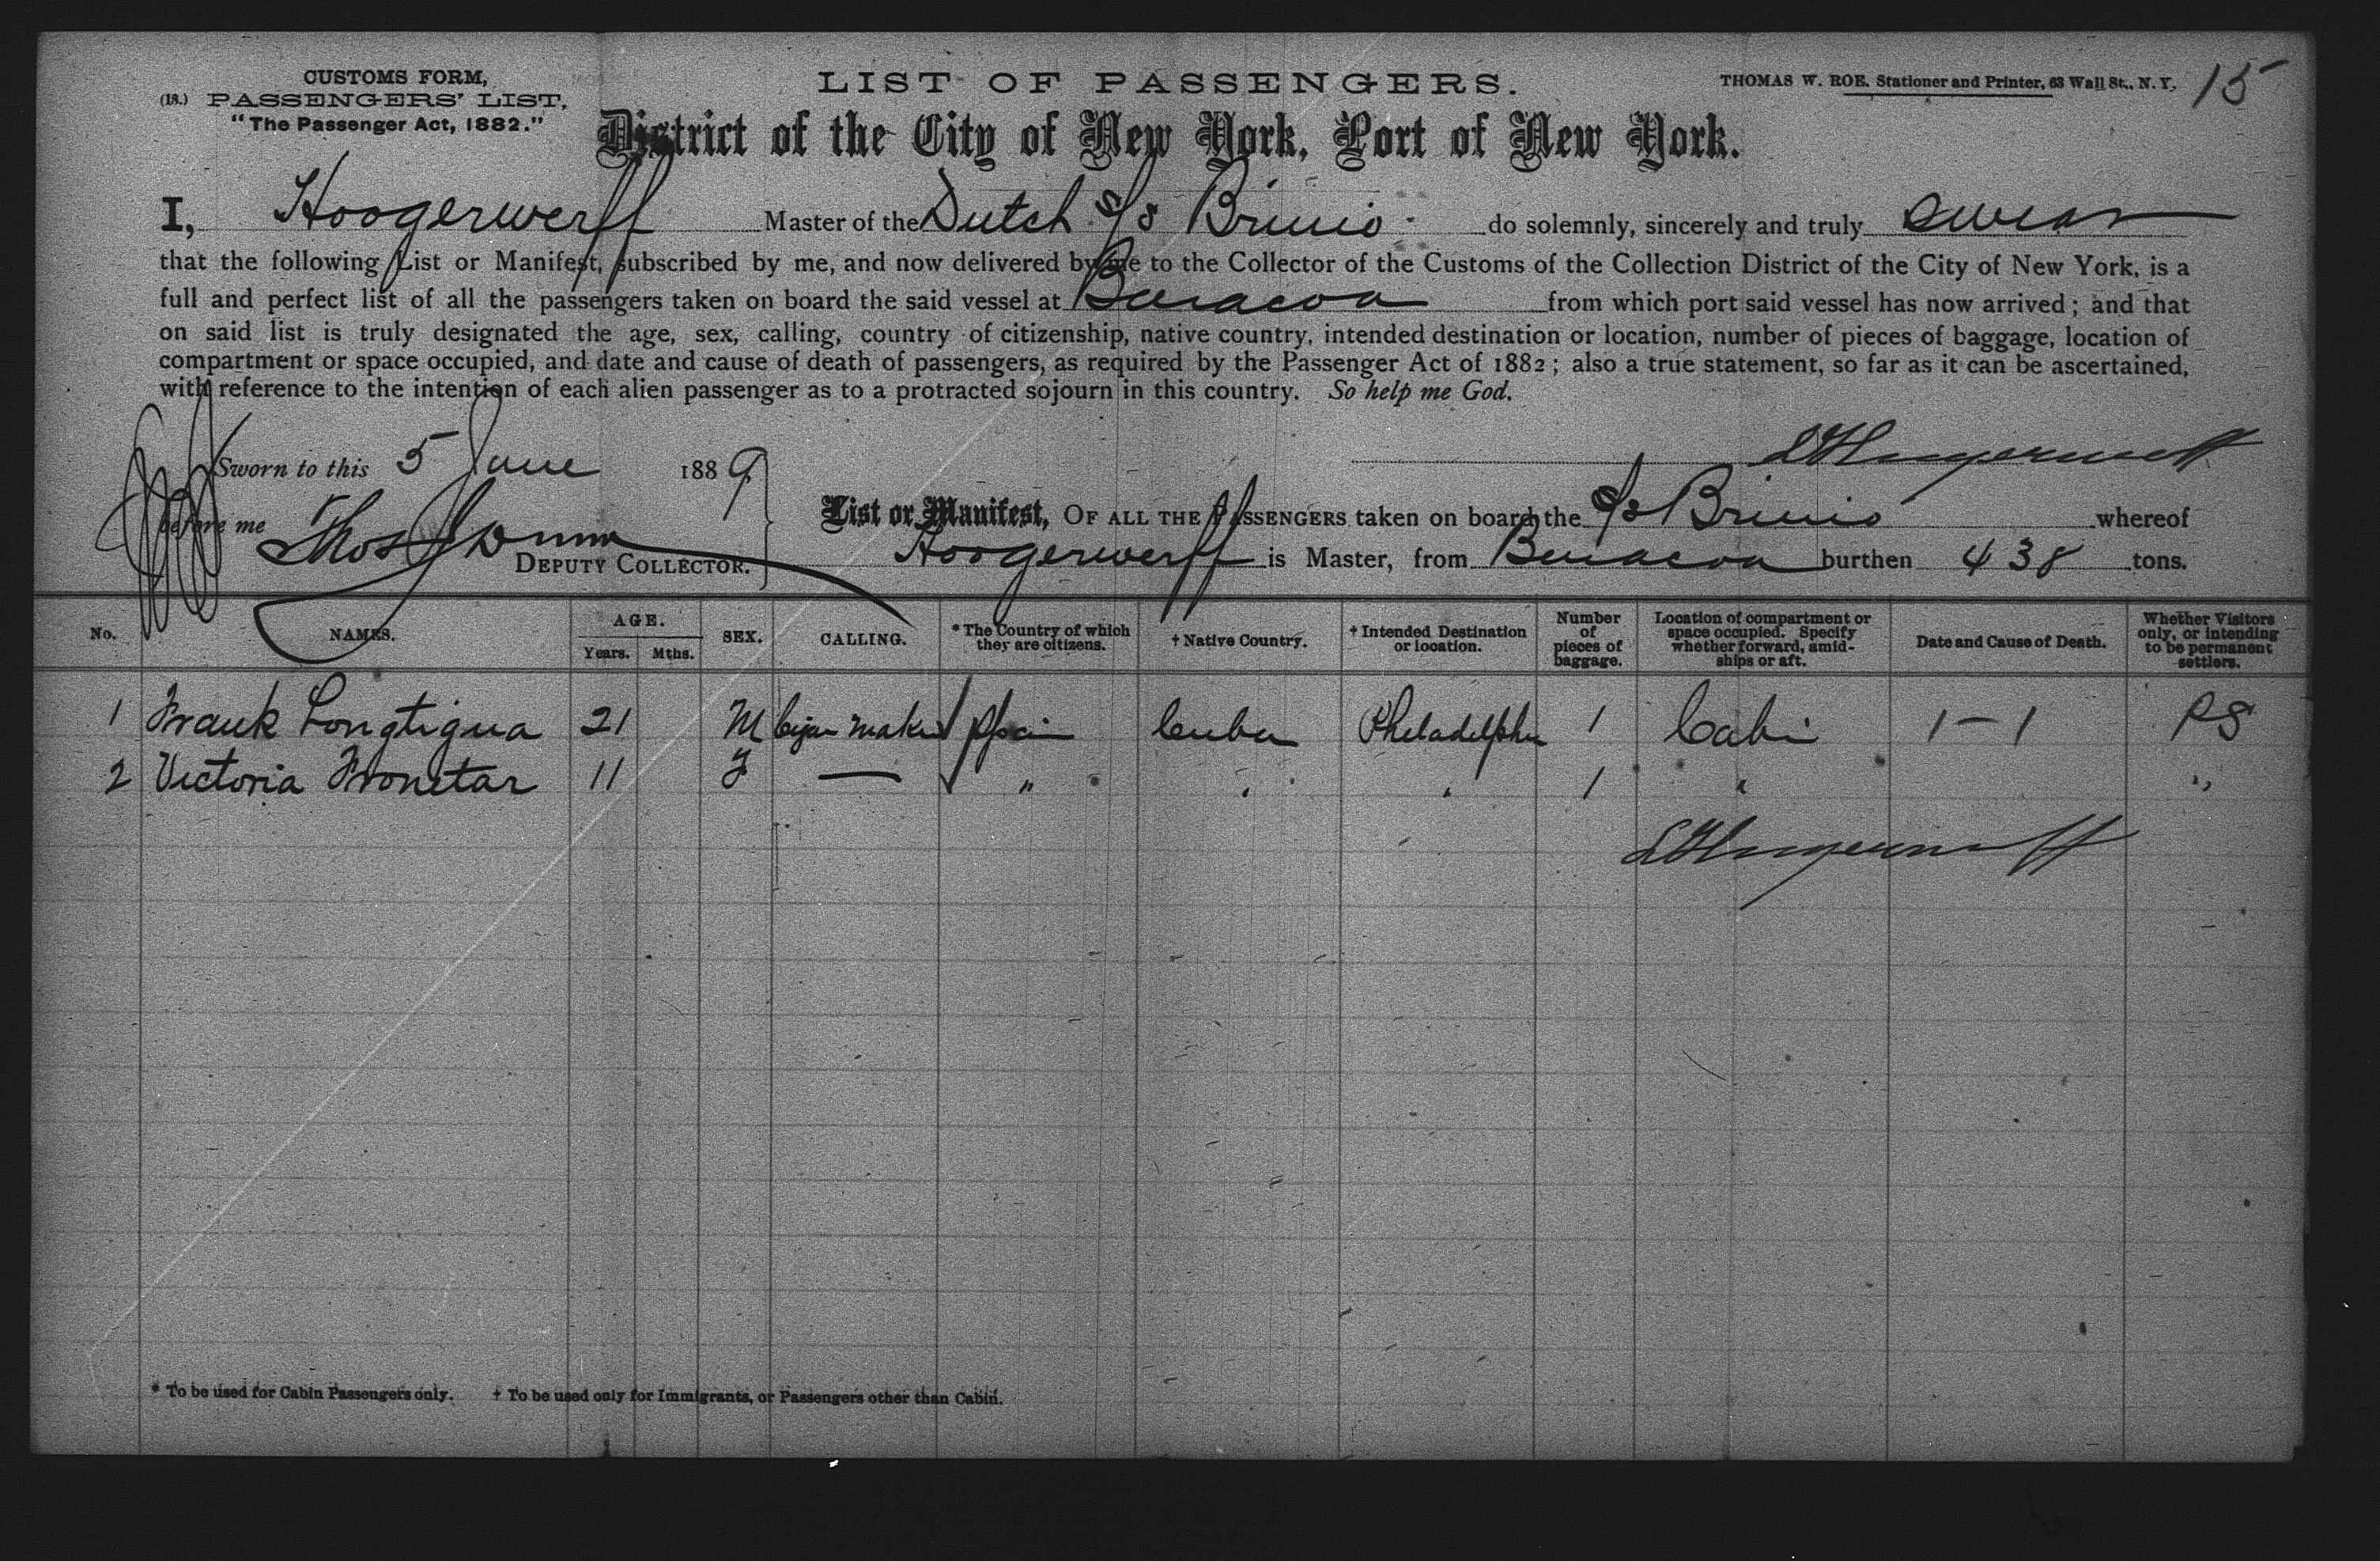 CUSTOMS FORM,
(18.) PASSENGERS' LIST,
"The Passenger Act, 1882."
LIST OF PASSENGERS.
THOMAS W. ROE, Stationer and Printer, 63 Wall St., N. Y.
15
District of the City of New York, Port of New York.
I, Hoogerwerff Master of the Dutch S/S Brinio do solemnly, sincerely and truly swear
that the following List or Manifest, subscribed by me, and now delivered by me to the Collector of the Customs of the Collection District of the City of New York, is a
full and perfect list of all the passengers taken on board the said vessel at Baracoa from which port said vessel has now arrived; and that
on said list is truly designated the age, sex, calling, country of citizenship, native country, intended destination or location, number of pieces of baggage, location of
compartment or space occupied, and date and cause of death of passengers, as required by the Passenger Act of 1882; also a true statement, so far as it can be ascertained,
with reference to the intention of each alien passenger as to a protracted sojourn in this country. So help me God.
Sworn to this 5 June 1889
before me Thos J Dunn
DEPUTY COLLECTOR.
Hoogerwerff
List or Manifest, OF ALL THE PASSENGERS taken on board the S/S Brinio whereof
Hoogerwerff is Master, from Baracoa burthen 438 tons.
No. NAMES. AGE. Years. Mths. SEX. CALLING. * The Country of which they are citizens. † Native Country. † Intended Destination or location. Number of pieces of baggage. Location of compartment or space occupied. Specify whether forward, amid-ships or aft. Date and Cause of Death. Whether Visitors only, or intending to be permanent settlers.
1 Frank Longtigua 21 M Cigar maker Spain Cuba Philadelphia 1 Cabin 1 — 1 PS
2 Victoria Fronetar 11 F — " " " 1 " "
Hoogerwerff
* To be used for Cabin Passengers only. † To be used only for Immigrants, or Passengers other than Cabin.